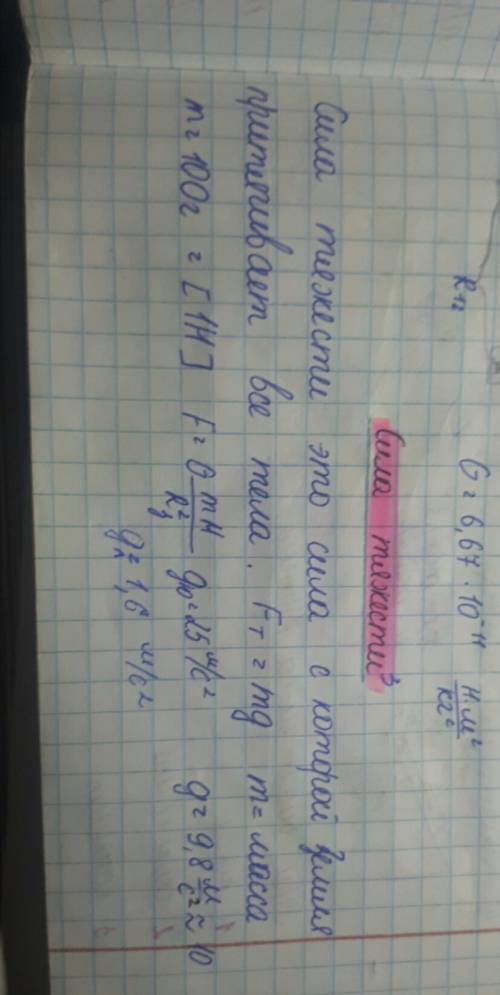 R₁₂
G = 6,67 · 10⁻¹¹ Н м²/кг²
Сила тяжести³
Сила тяжести это сила с которой Земля
притягивает все тела. Fт = mg m = масса
m = 100г = [1Н] F = G mM/R²з g₀ = 25 м/с² g = 9,8 м/с² ≈ 10
gл = 1,6 м/с²